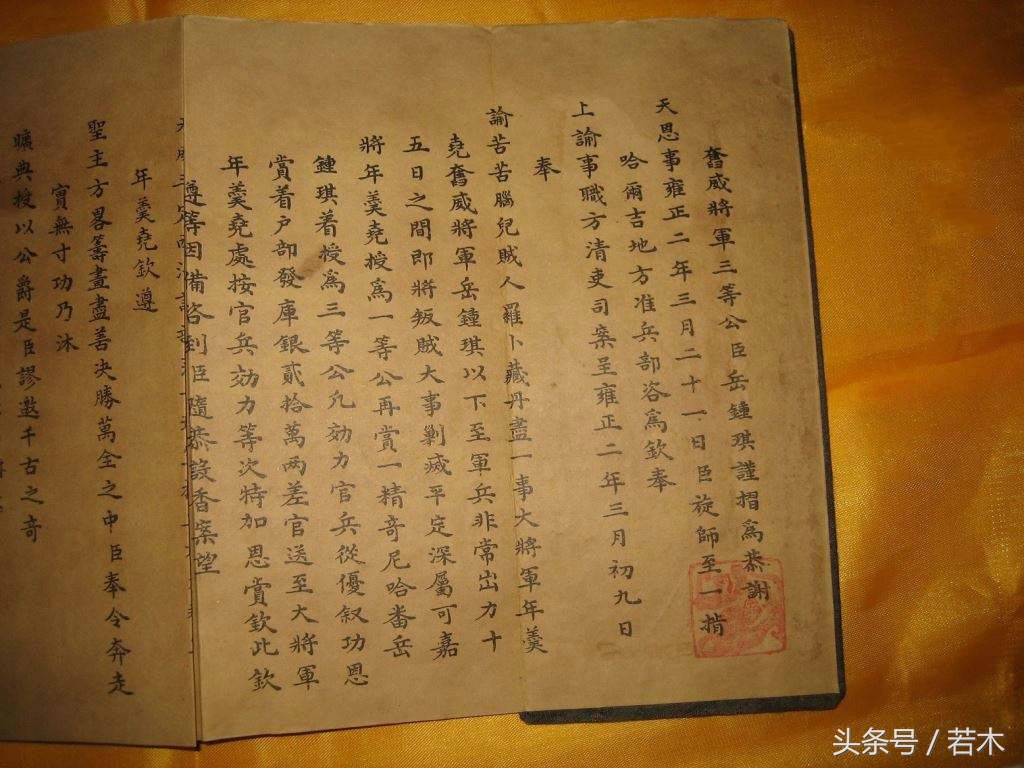 奮威將軍三等公臣岳鍾琪謹摺爲恭謝
天恩事雍正二年三月二十一日臣旋師至一揹
哈爾吉地方准兵部咨爲欽奉
上諭事職方清吏司案呈雍正二年三月初九日
奉
諭苦苦腦兒賊人羅卜藏丹盡一事大將軍年羹
堯奮威將軍岳鍾琪以下至軍兵非常出力十
五日之間即將叛賊大事剿滅平定深屬可嘉
將年羹堯授爲一等公再賞一精奇尼哈番岳
鍾琪着授爲三等公凡効力官兵從優叙功恩
賞着户部發庫銀貳拾萬两差官送至大將軍
年羹堯處按官兵効力等次特加恩賞欽此欽
遵等因備咨到臣隨恭設香案望
年羹堯欽遵
聖主方畧籌畫盡善决勝萬全之中臣奉令奔走
實無寸功乃沐
曠典授以公爵是臣謬邀千古之奇
头条号 / 若木